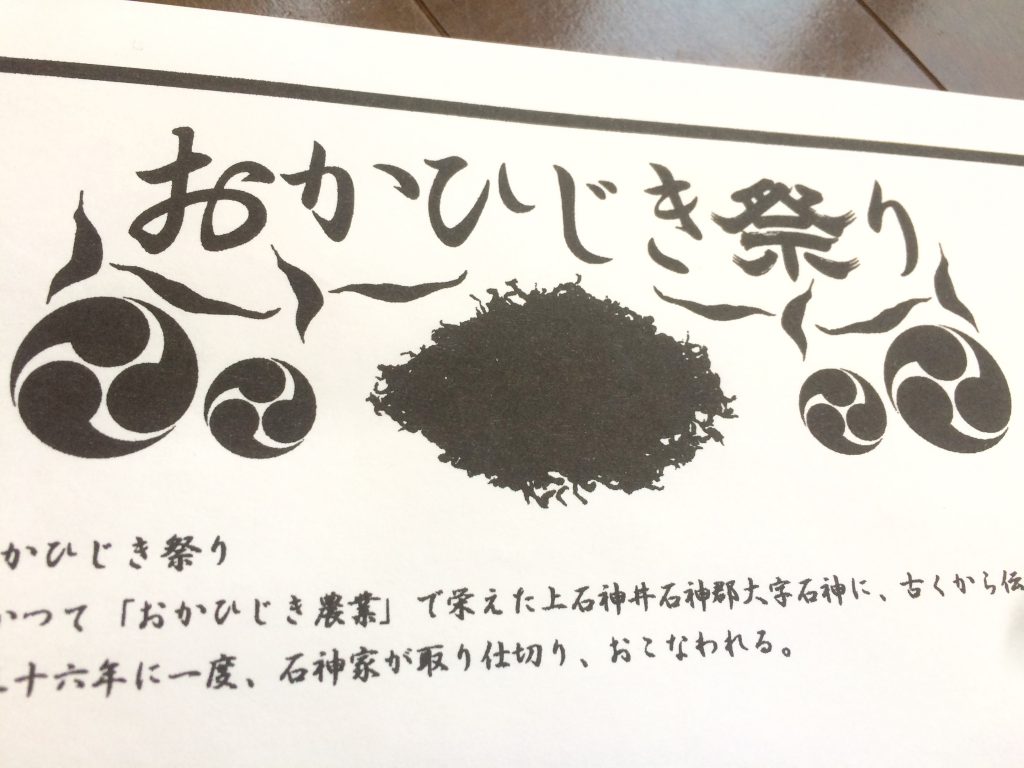 おかひじき祭り
かひじき祭り
かつて「おかひじき農業」で栄えた上石神井石神郡大字石神に、古くから伝
十六年に一度、石神家が取り仕切り、おこなわれる。